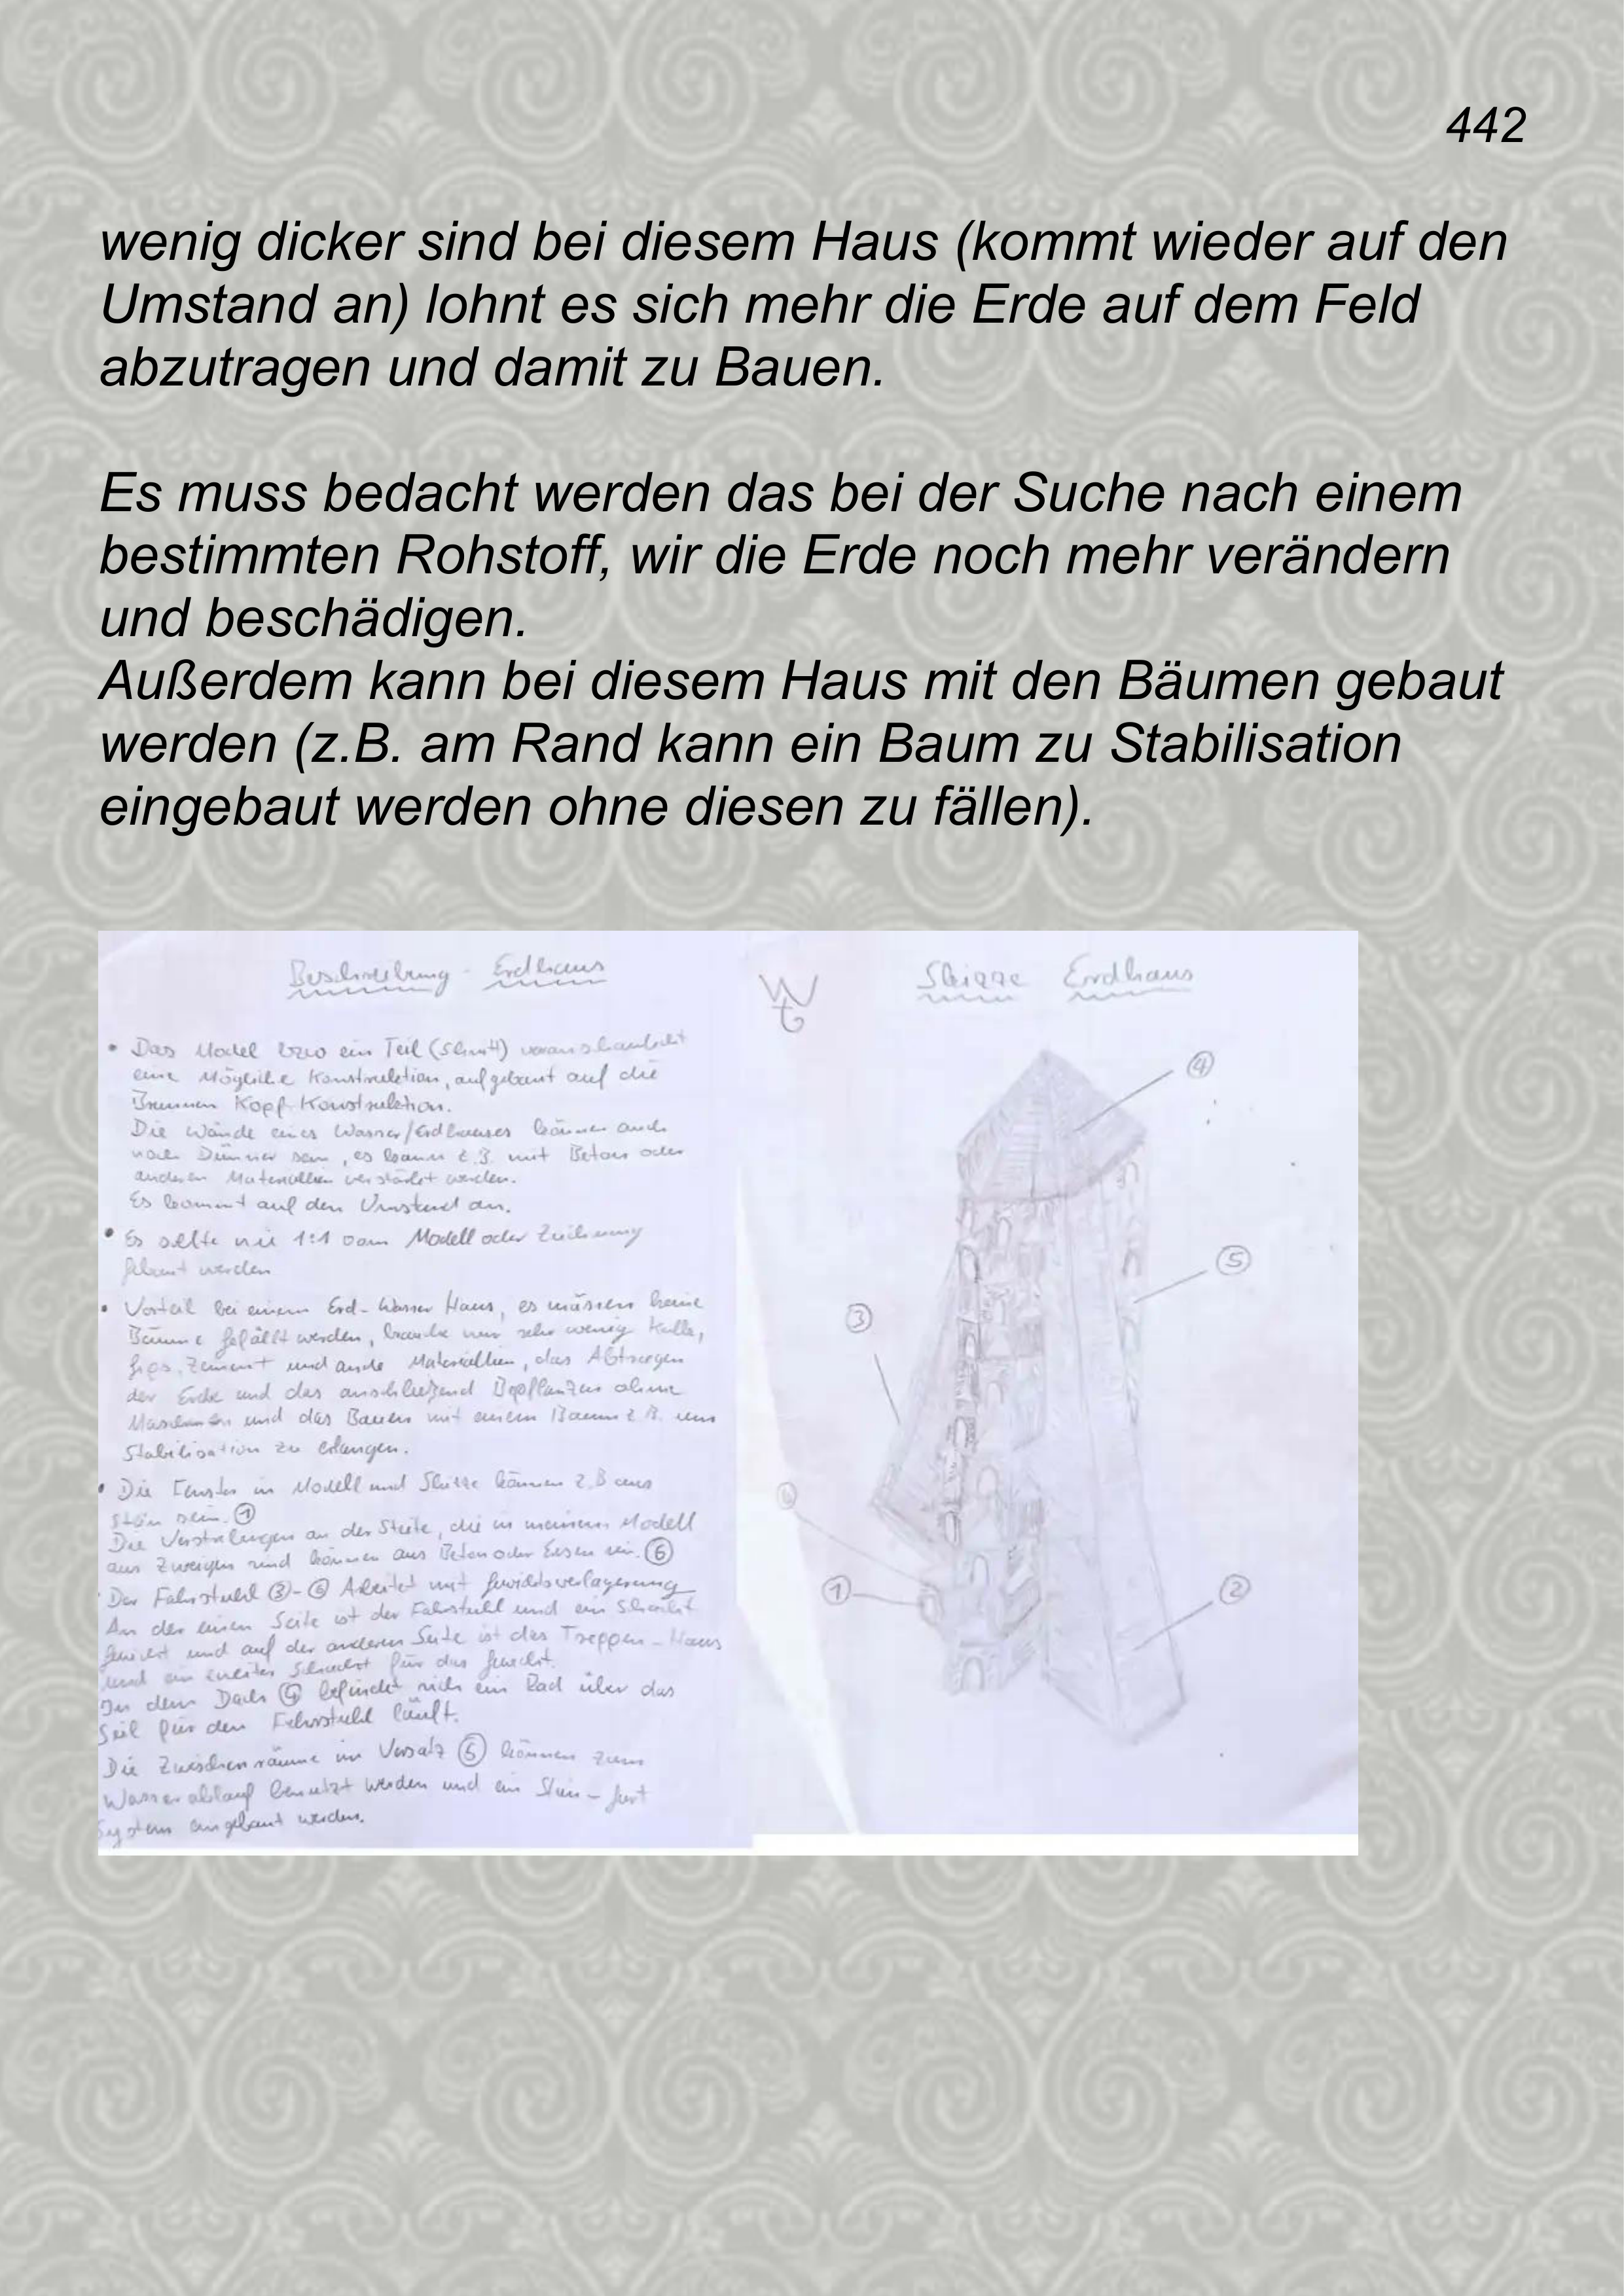 442
wenig dicker sind bei diesem Haus (kommt wieder auf den
Umstand an) lohnt es sich mehr die Erde auf dem Feld
abzutragen und damit zu Bauen.
Es muss bedacht werden das bei der Suche nach einem
bestimmten Rohstoff, wir die Erde noch mehr verändern
und beschädigen.
Außerdem kann bei diesem Haus mit den Bäumen gebaut
werden (z.B. am Rand kann ein Baum zu Stabilisation
eingebaut werden ohne diesen zu fällen).
Beschreibung - Erdhaus
• Das Model bzw ein Teil (Schnitt) veranschaulicht
eine Mögliche Konstruktion, aufgebaut auf die
Brunnen Kopf Konstruktion.
Die Wände eines Wasser/Erdhauses können auch
noch Dünner sein, es kann z.B. mit Beton oder
anderen Materiallien verstärkt werden.
Es kommt auf den Umstand an.
• Es sollte nie 1:1 vom Modell oder Zeichnung
gebaut werden
• Vorteil bei einem Erd-Wasser Haus, es müssen keine
Bäume gefällt werden, brauche nur sehr wenig Kalk,
Zement und Materiallien, das Abtragen
der Erde und das anschließend Bepflanzen ohne
Maschinen und das Bauen mit einem Baum z.B. um
Stabilisation zu erlangen.
• Die Fenster in Modell und Skizze können z.B aus
Stein sein. ①
Die an der Steite, die in meinem Modell
aus Zweigen sind können aus Beton oder Eisen sein. ⑥
Der Fahrstuhl Arbeitet mit Gewichtsverlagerung
An der einen Seite ist der Fahrstuhl und ein Schacht
Gewicht und auf der anderen Seite ist das Treppen-Haus
und ein zweiter Schacht für das Gewicht.
In dem Dach ④ befindet sich ein Rad über das
Seil für den Fahrstuhl läuft.
Die Zwischenräume im Versatz ⑤ können zum
Wasserablauf benutzt werden und ein Stein-
System eingebaut werden.
Skizze Erdhaus
④
⑤
③
⑥
①
②